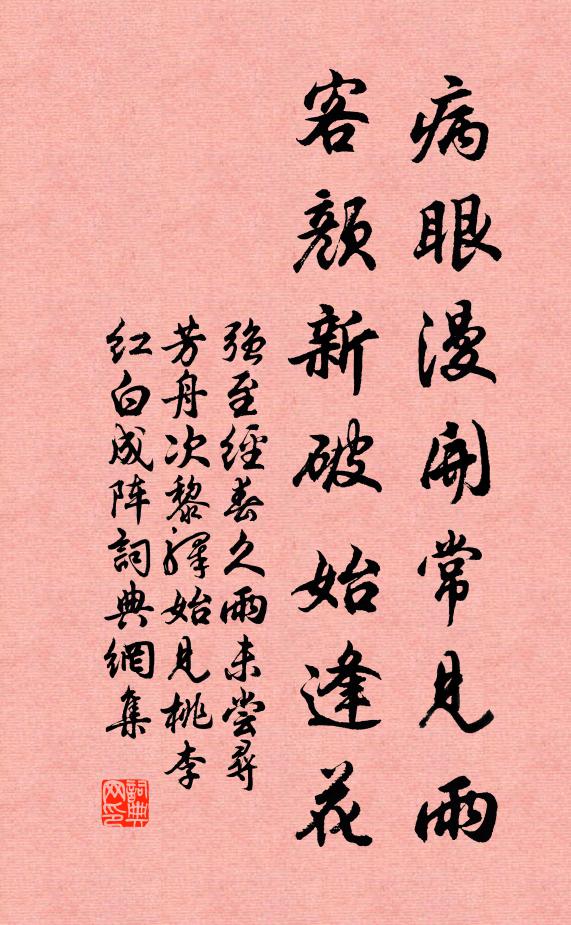 病眼漫開常見雨
客顏新破始逢花
強至經春久雨未嘗尋
芳舟次黎驛始見桃李
红白成阵詞典網集
詞典
网印